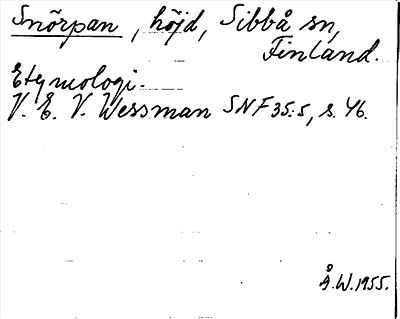 Snörpan, höjd, Sibbå sn,
Finland.
Etymologi.
V. E. V. Wessman SNF 35:5, s. 46.
Å.W. 1955.